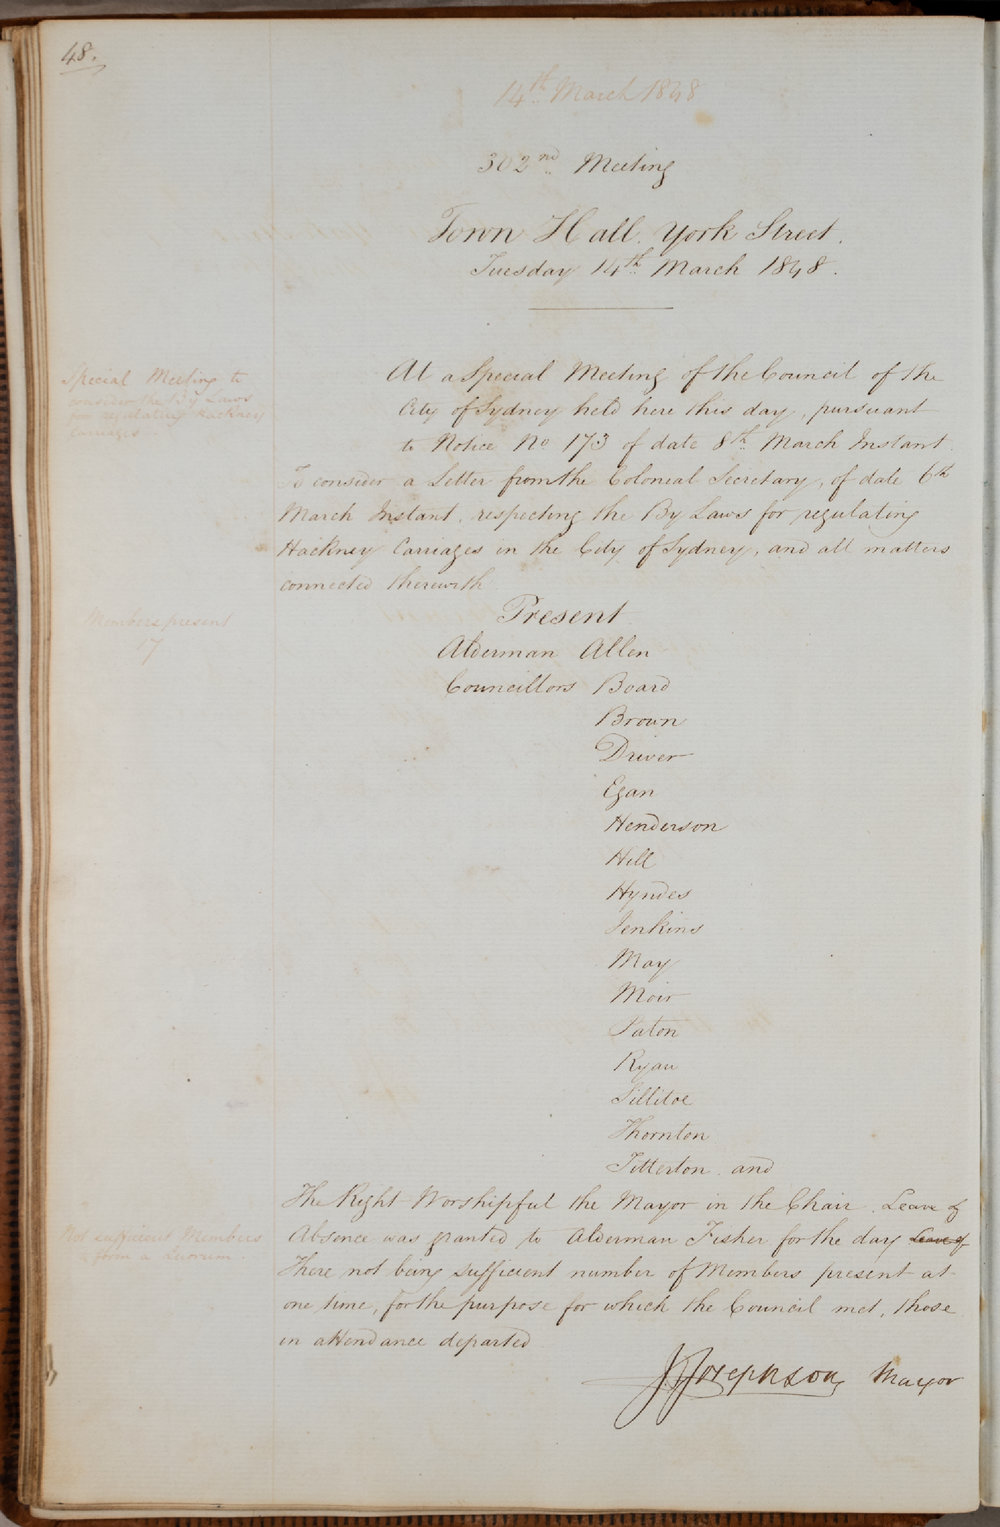 48.
14th March 1848
302nd Meeting
Town Hall. York Street.
Tuesday 14th March 1848.
Special Meeting to
consider the By Laws
for regulating Hackney
Carriages.
At a Special Meeting of the Council of the
City of Sydney held here this day, pursuant
to Notice No 173 of date 8th March Instant.
To consider a Letter from the Colonial Secretary, of date 6th
March Instant, respecting the By Laws for regulating
Hackney Carriages in the City of Sydney, and all matters
connected therewith
Members present
17
Present
Alderman Allen
Councillors Board
Brown
Driver
Egan
Henderson
Hill
Hyndes
Jenkins
May
Moir
Paton
Ryan
Sillitoe
Thornton
Titterton and
The Right Worshipful the Mayor in the Chair. Leave of
Not sufficient Members
to form a Quorum
Absence was granted to Alderman Fisher for the day Leave of
There not being sufficient number of Members present at
one time, for the purpose for which the Council met, those
in attendance departed
J F Josephson, Mayor